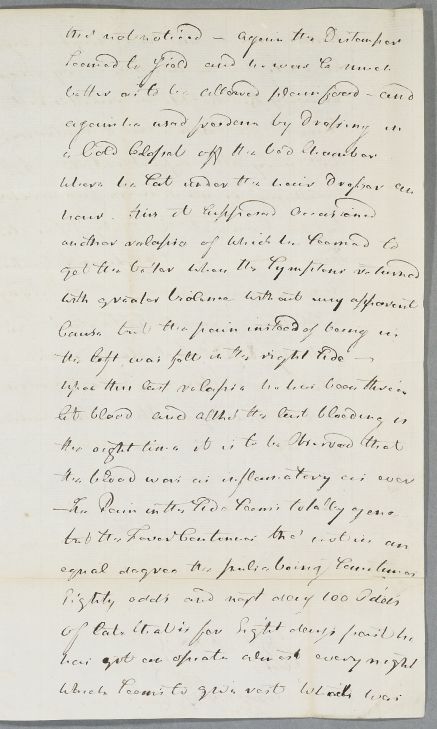 tho' not noticed – again the Distemper
seemed to yield and he was so much
better as to be allowed plain food – and
again he used freedom by Dressing in
a Cold Closet off the bed Chamber
where he sat under the hair Dresser an
hour. this it supposed occasioned
another relapse of which he seemed to
get the better when the Symptoms returned
with greater Violence without any apparent
Cause but the pain instead of being in
the left was felt in the right side –
upon this last relapse he has been thrice
let blood and altho' the last bleeding is
the eight time it is to be Observed that
the blood was as inflamatory as ever
– The Pain in the side seems totally gone
but the Fever Continues tho' not in an
equal degree the pulse being sometimes
Eighty odds and next day 100 odds
of late that is for Eight days past he
has got an opiate almost every night
which seems to give rest which was